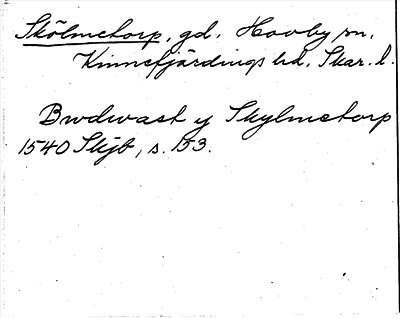 Skölmetorp, gd, Hovby sn,
Kinnefjärdings hd. Skar. l.
Bwdwast y Skylmetorp
1540 Skjb, s. 153.